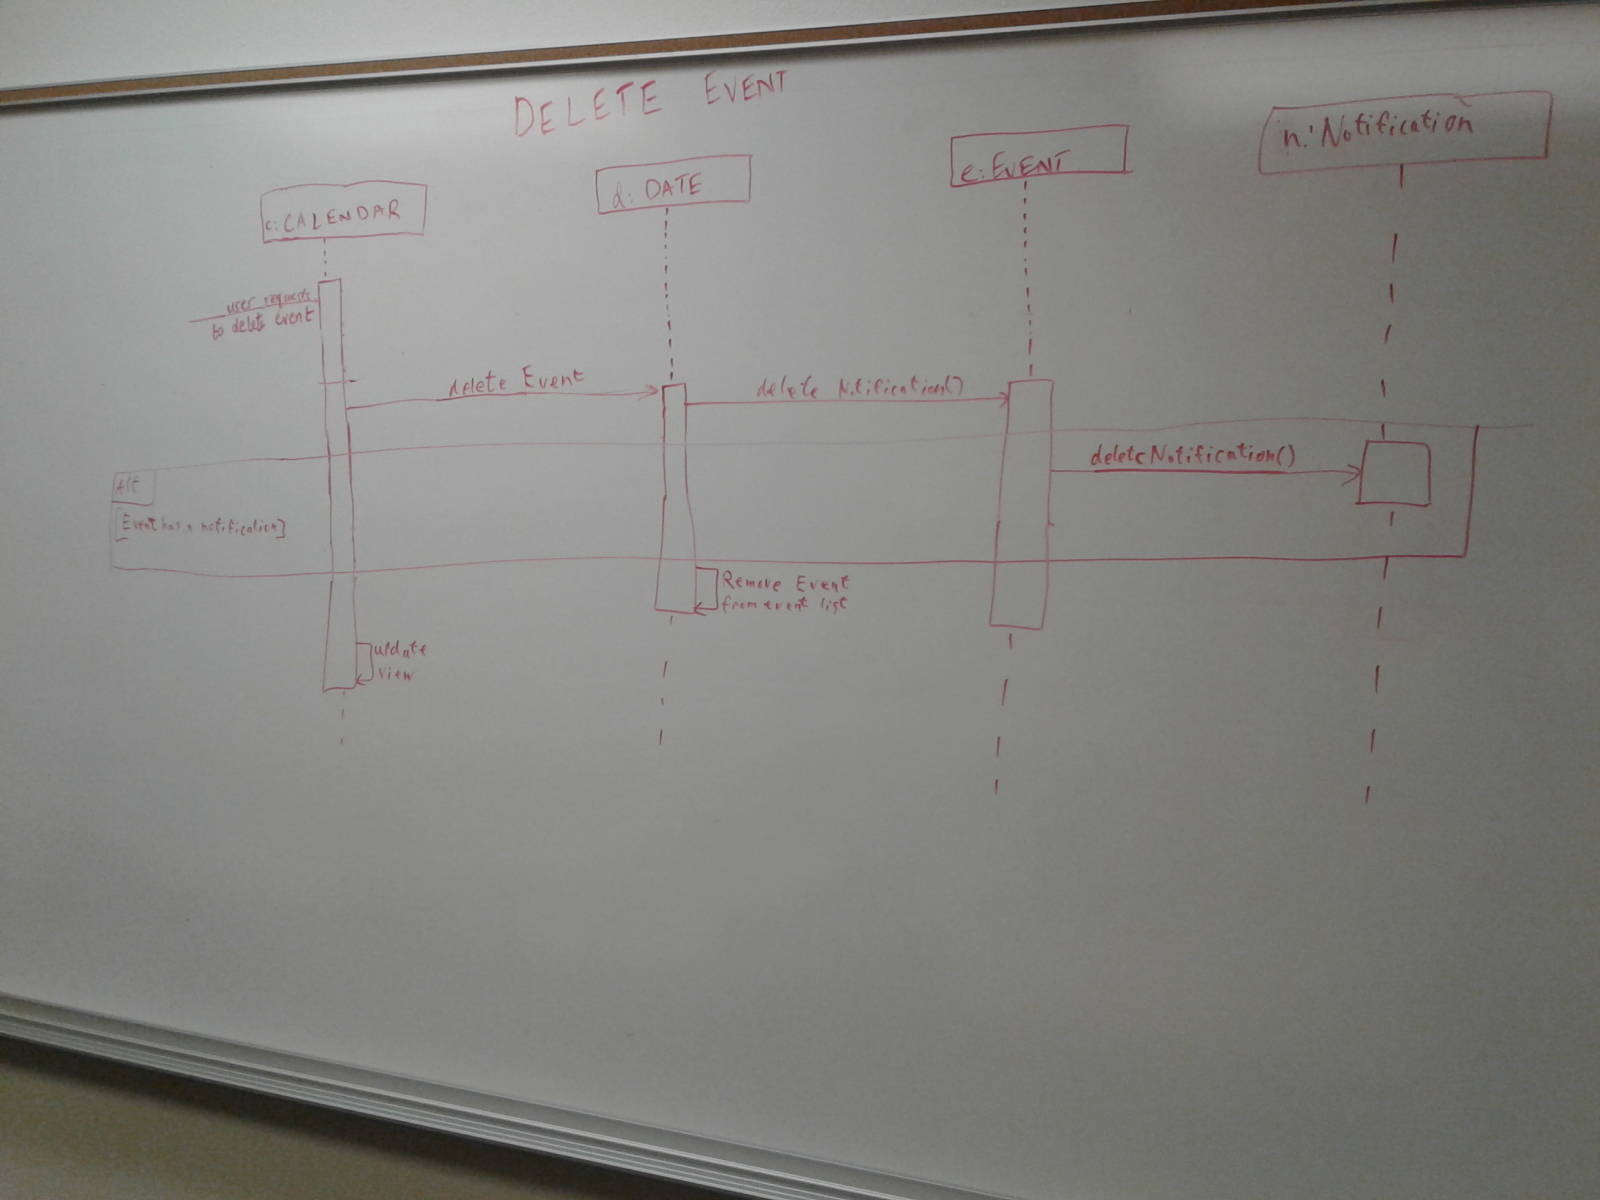 DELETE EVENT
c:CALENDAR
d: DATE
e:EVENT
n:Notification
user requests
to delete event
delete Event
delete Notification()
deleteNotification()
Alt
[Event has a notification]
Remove Event
from event list
update
view